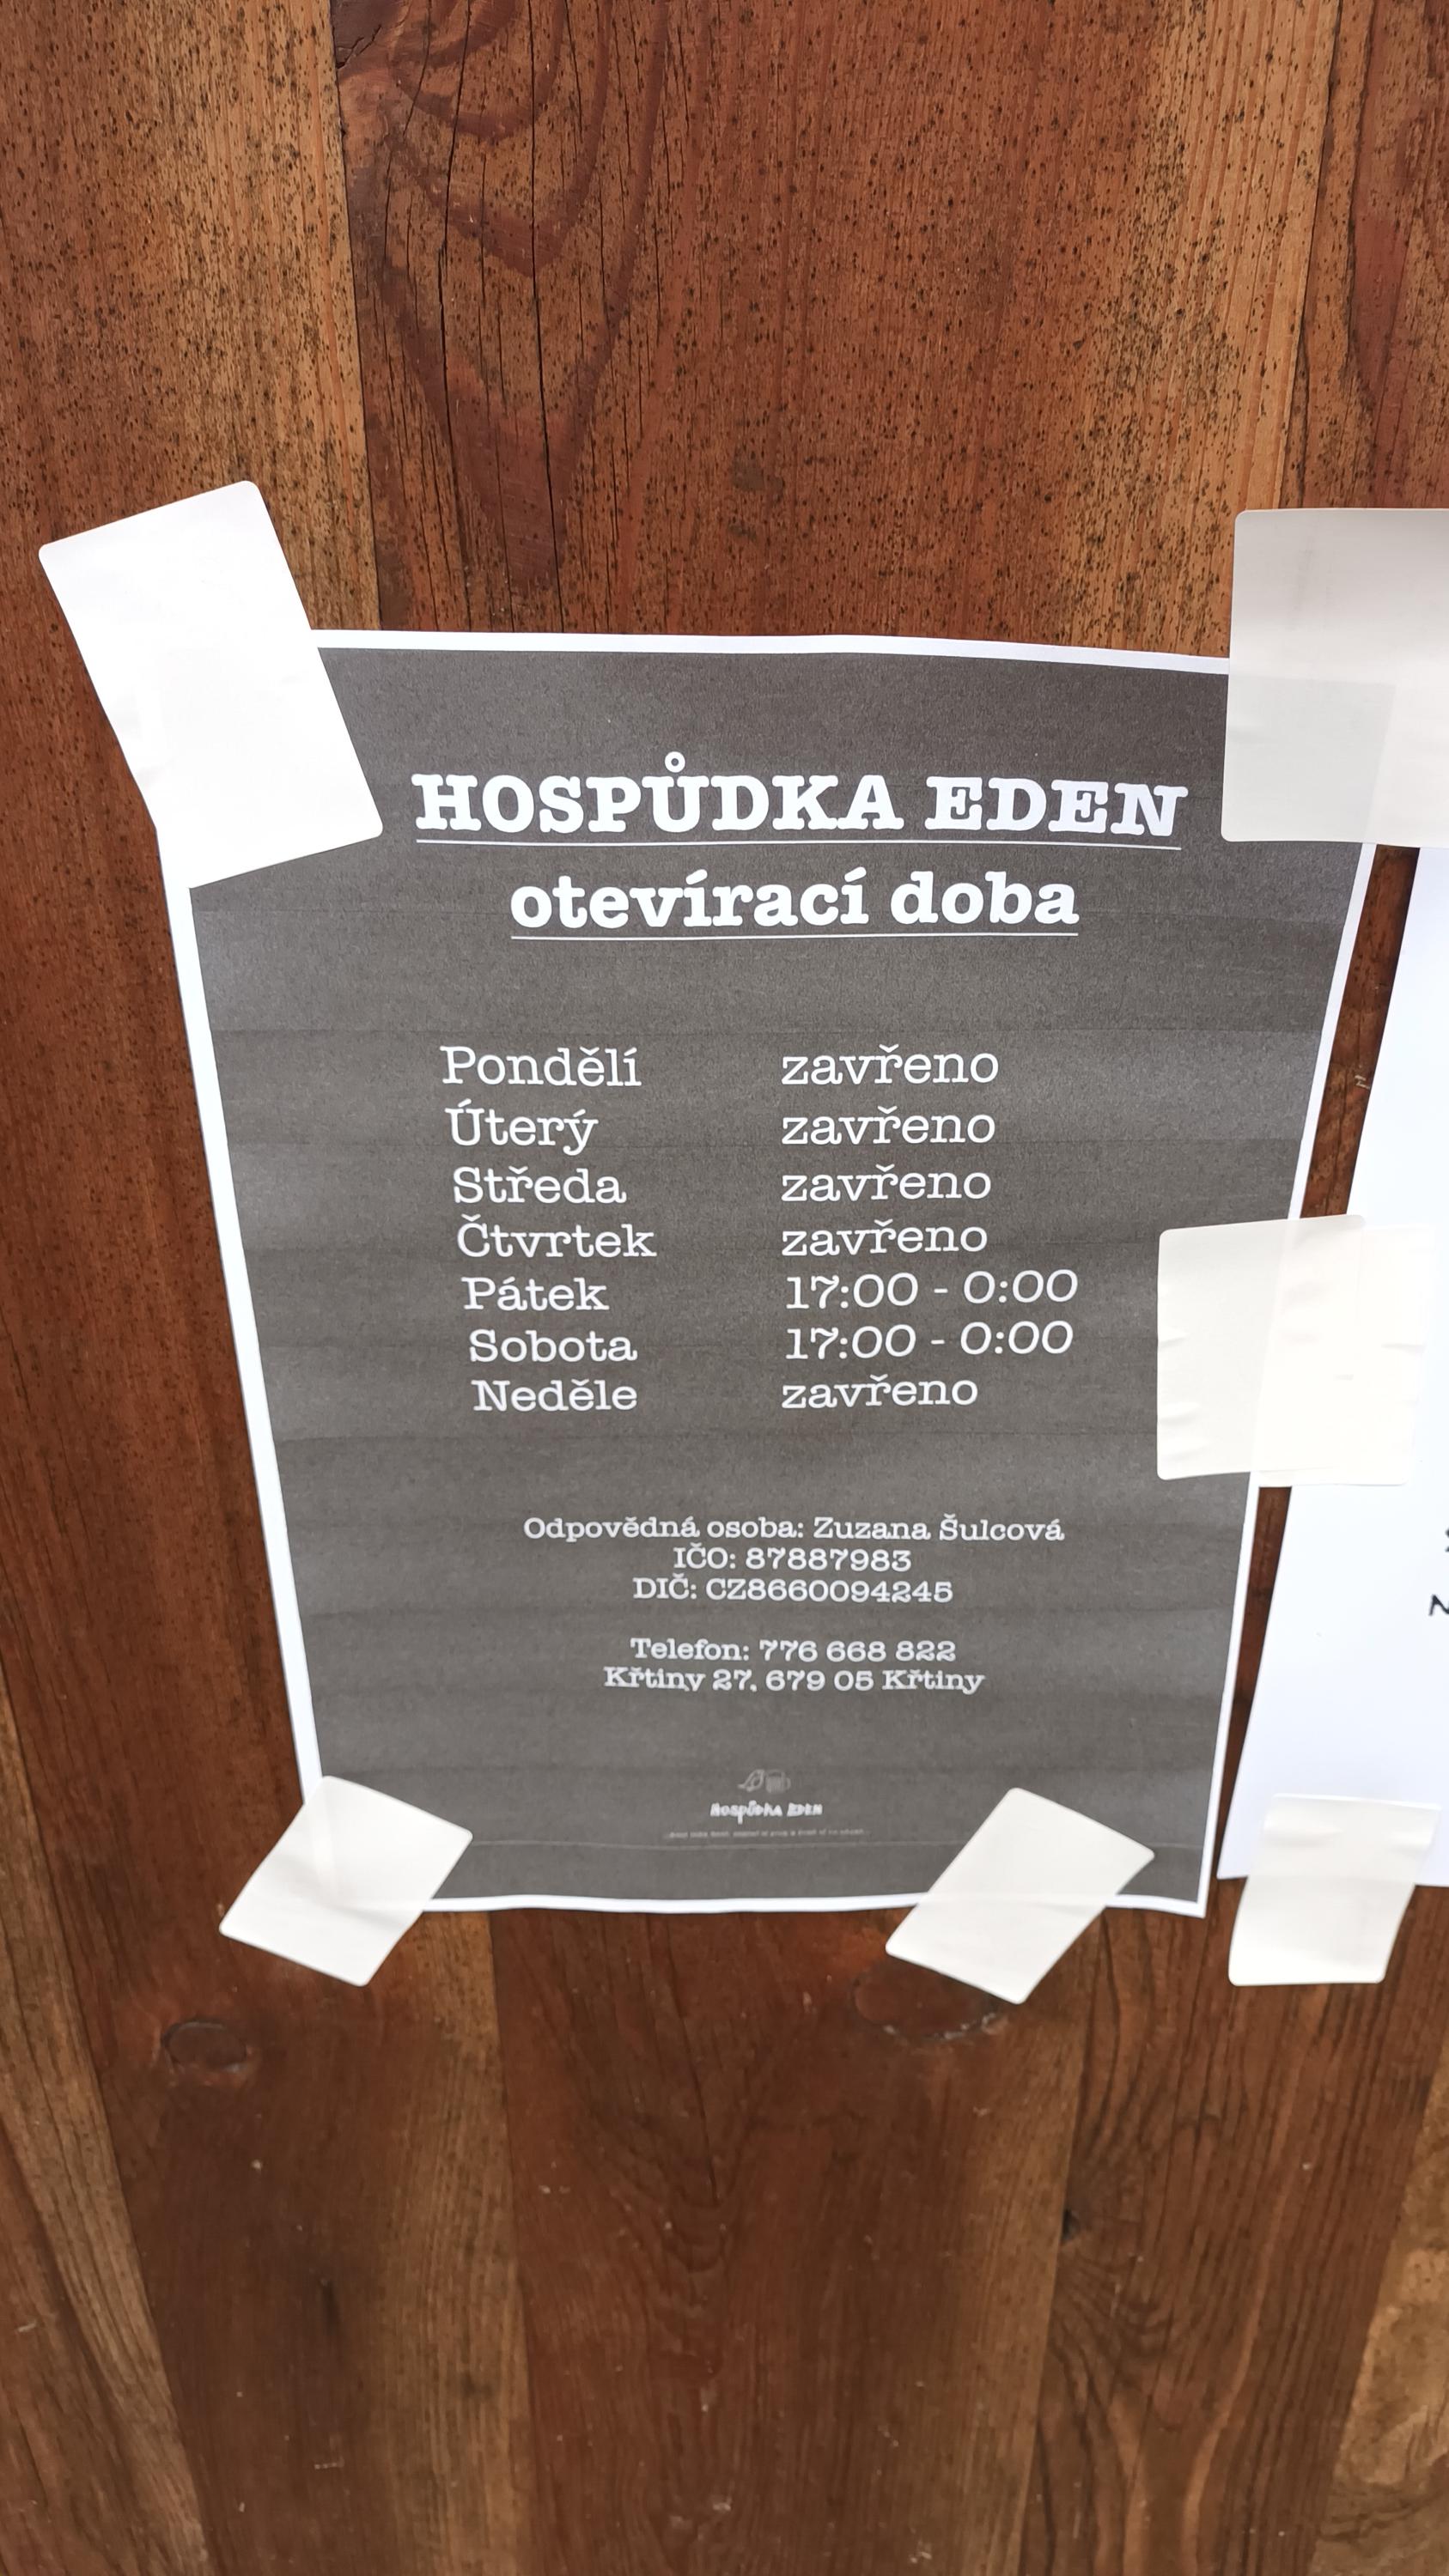 HOSPŮDKA EDEN
otevírací doba
Pondělí zavřeno
Úterý zavřeno
Středa zavřeno
Čtvrtek zavřeno
Pátek 17:00 - 0:00
Sobota 17:00 - 0:00
Neděle zavřeno
Odpovědná osoba: Zuzana Šulcová
IČO: 87887983
DIČ: CZ8660094245
Telefon: 776 668 822
Křtiny 27, 679 05 Křtiny
HOSPŮDKA EDEN